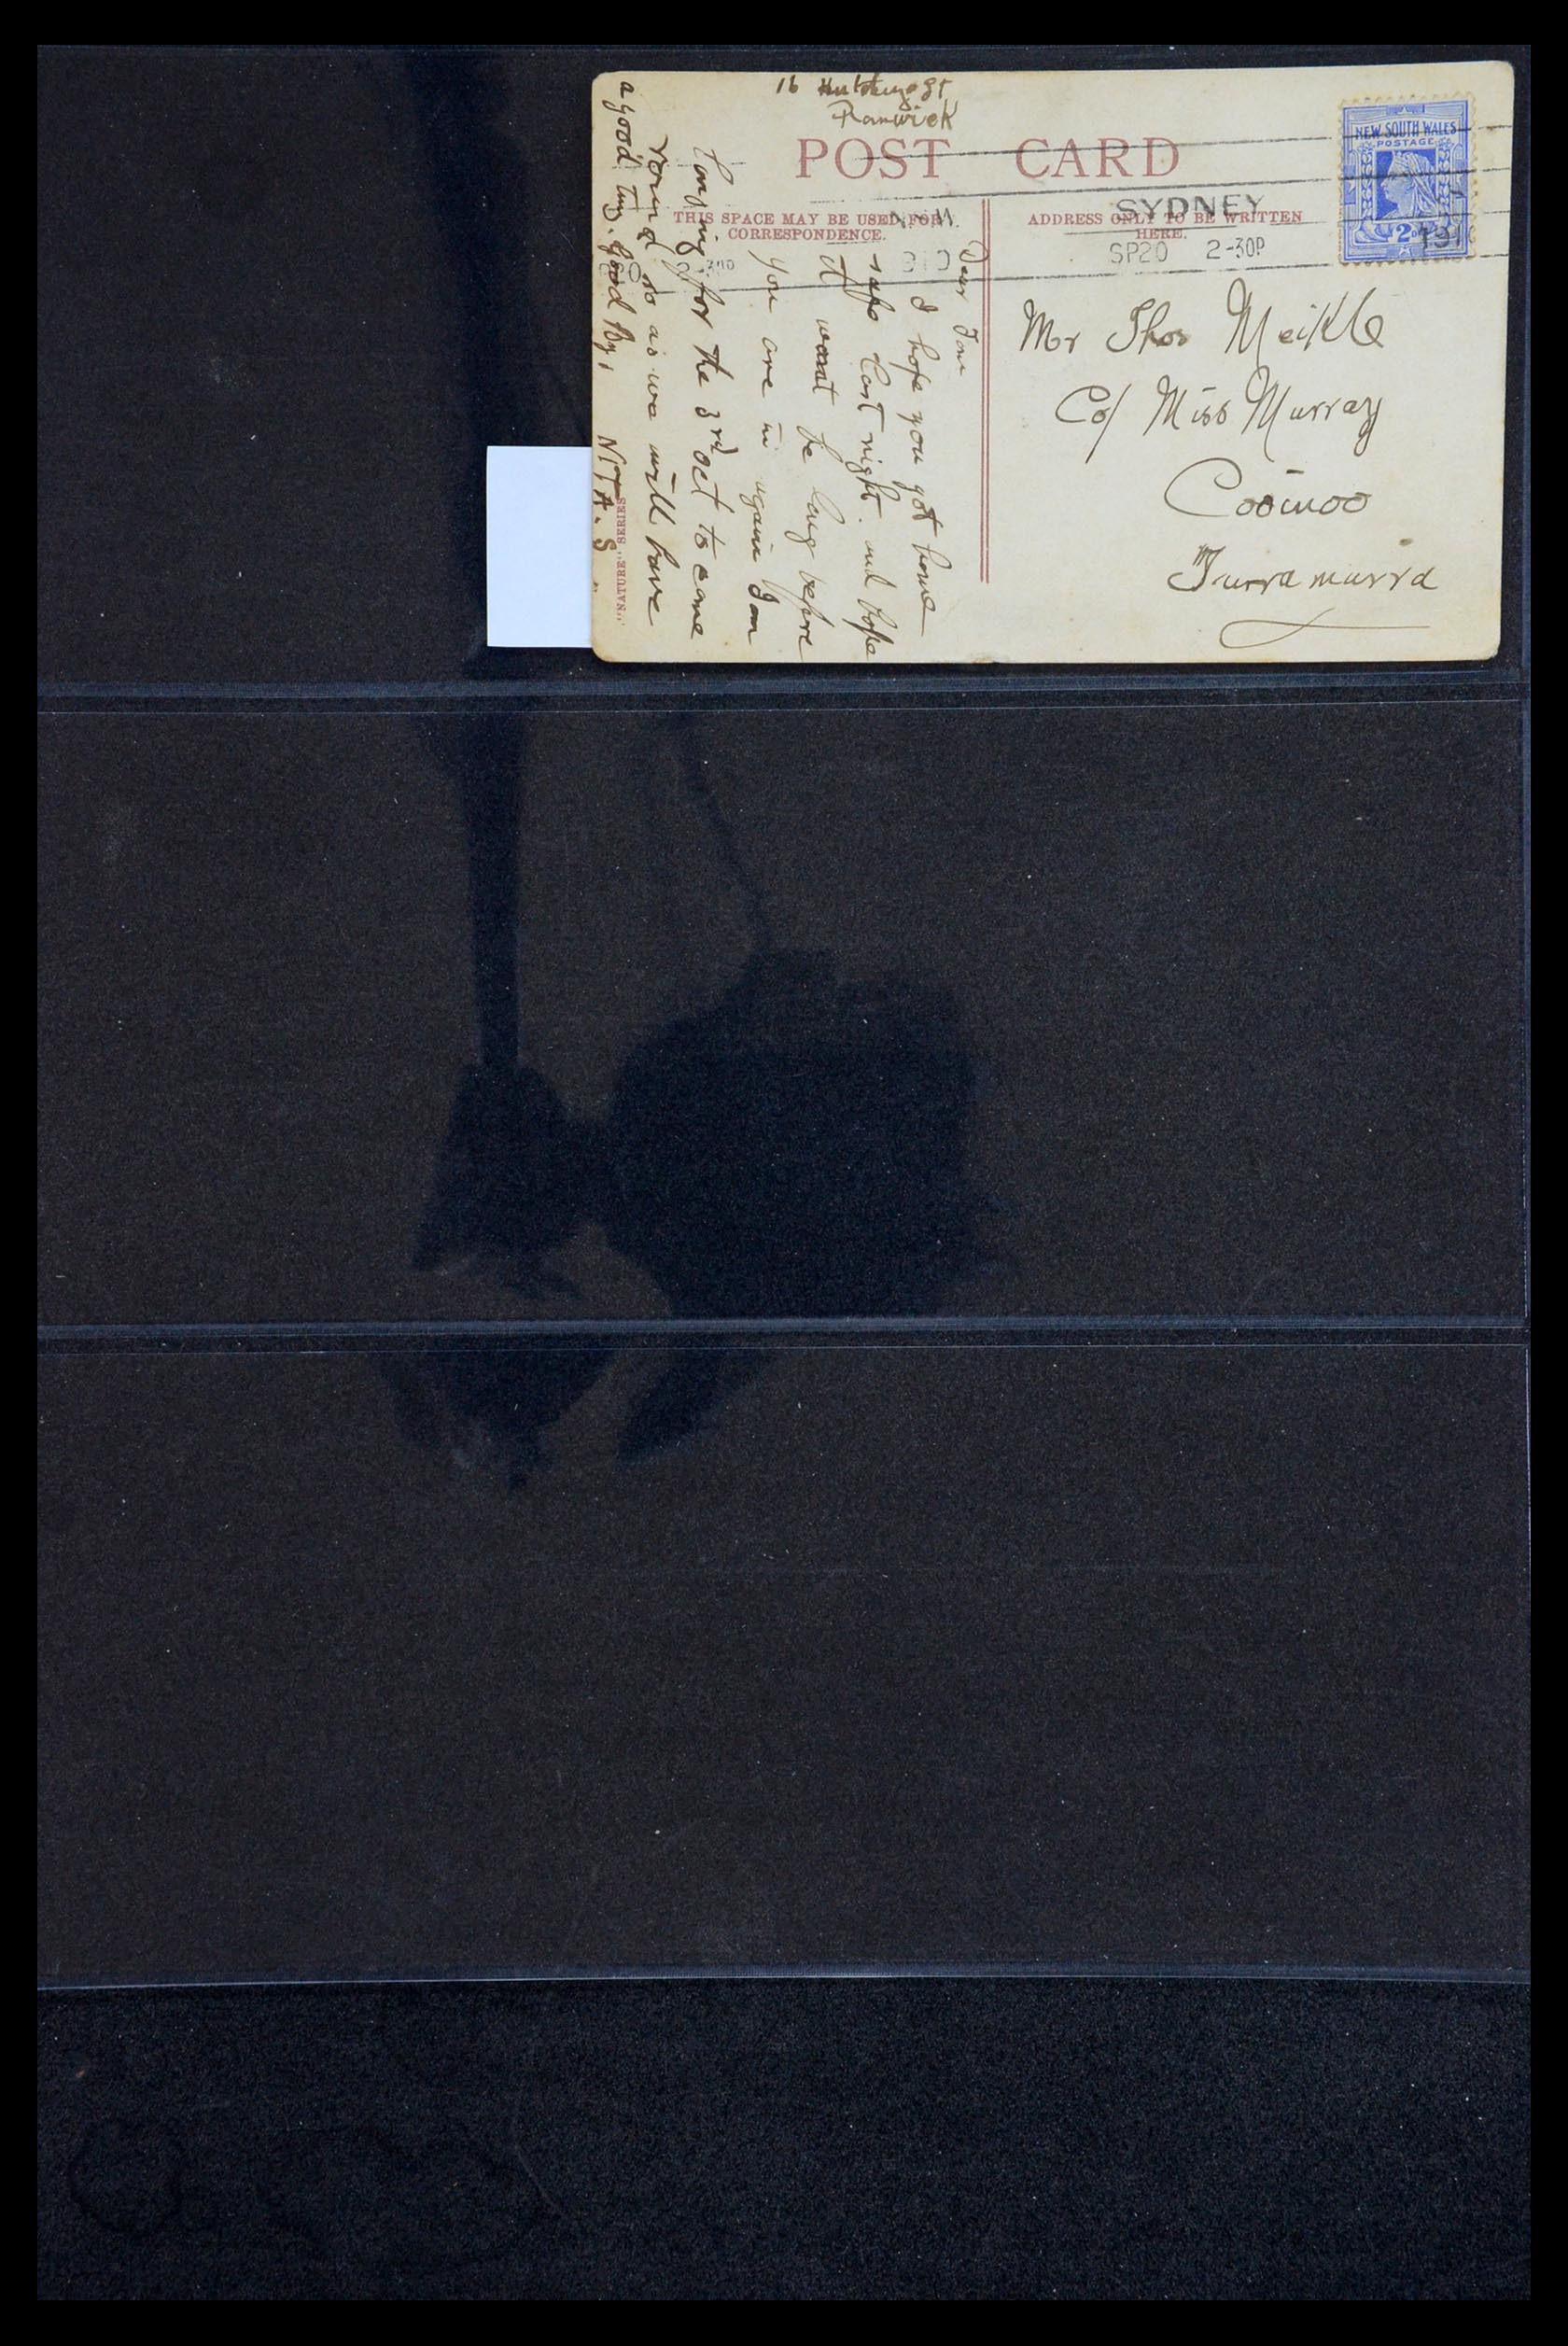 16 St
Randwick
POST CARD
NEW SOUTH WALES
POSTAGE
2
THIS SPACE MAY BE USED FOR
CORRESPONDENCE.
ADDRESS ONLY TO BE WRITTEN
HERE.
SYDNEY
N.S.W.
SP20 2-30P
191
Mr Thos Meikle
C/o Miss Murray
Cooinoo
Turramurra
Dear Tom
I hope you got home
safe last night. and hope
it wont be long before
you are in again I am
longing for the 3rd Oct to come
round so as we will have
a good time. Good By,
"NATURE" SERIES